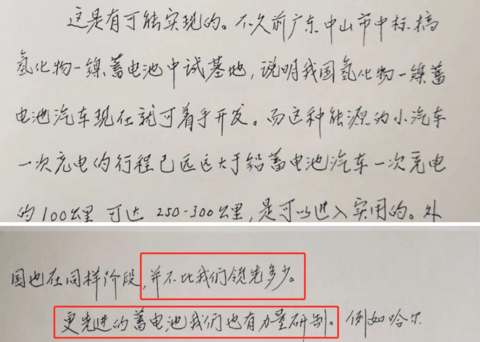 这是有可能实现的。不久前广东中山市中标搞
氢化物一镍蓄电池中试基地,说明我国氢化物一镍蓄
电池汽车现在就可着手开发。而这种能源的小汽车
一次充电的行程已远远大于铅蓄电池汽车一次充电
的100公里可达250-300公里,是可以进入实用的。外
国也在同样阶段,并不比我们领先多少。
更先进的蓄电池我们也有力量研制。例如哈尔